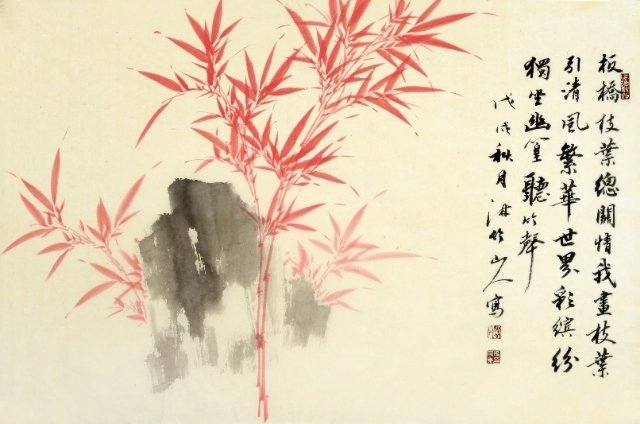 板橋枝葉總關情我畫枝葉
引清風繁華世界彩缤纷
獨坐幽篁聽竹聲
戊戌秋月竹山人寫